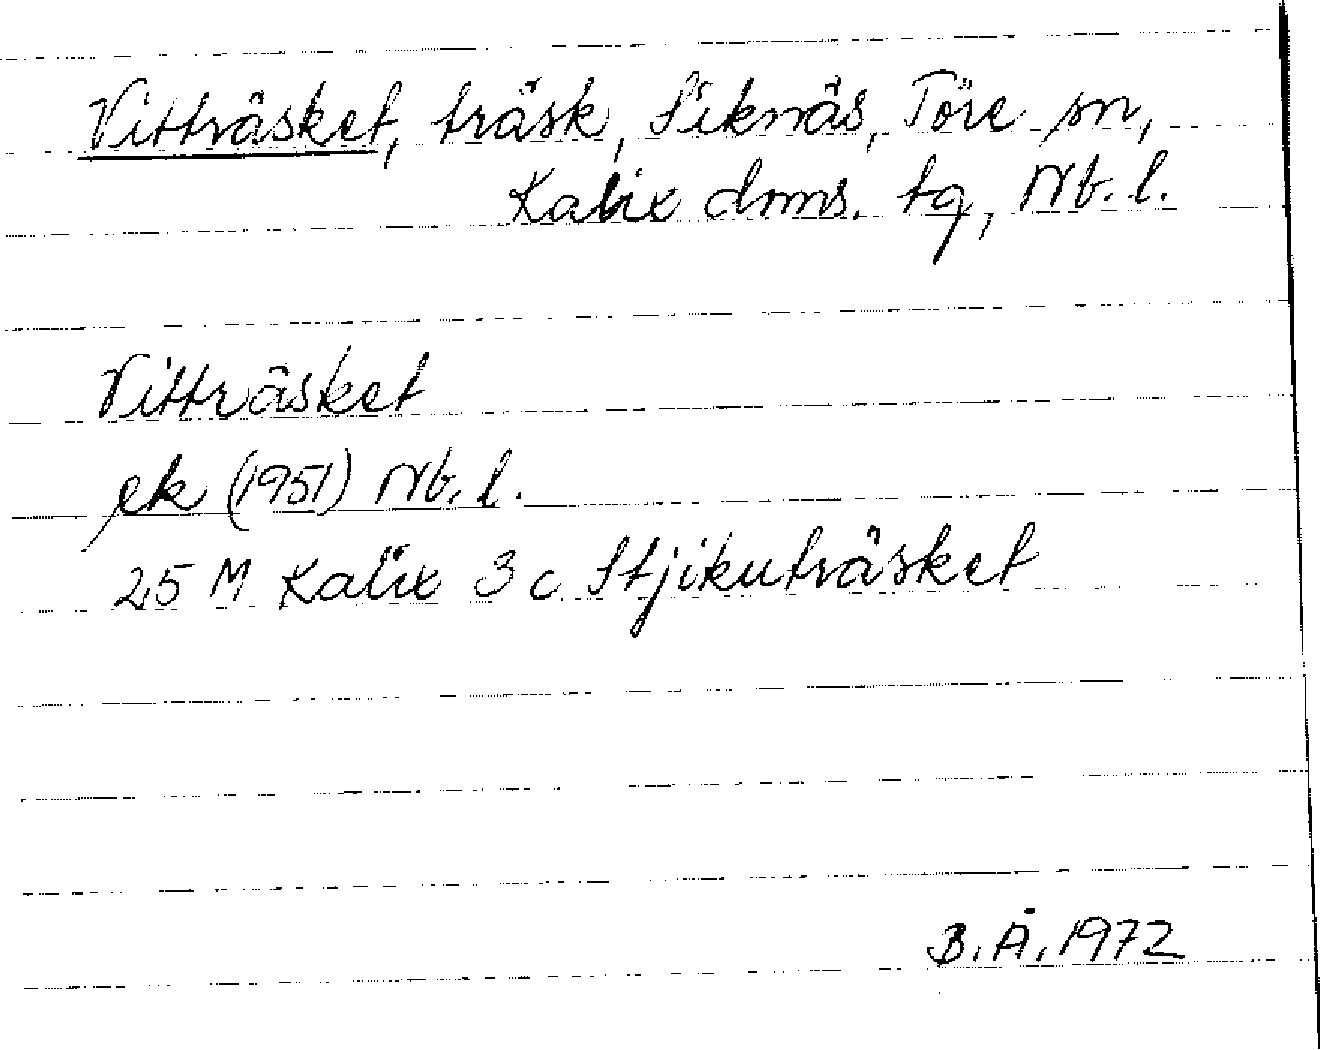 Vitträsket, träsk, Siknäs, Töre sn,
Kalix dms. tg, Nb. l.
Vitträsket
ek (1951) Nb. l.
25 M Kalix 3 c Stjikuträsket
B. Å. 1972